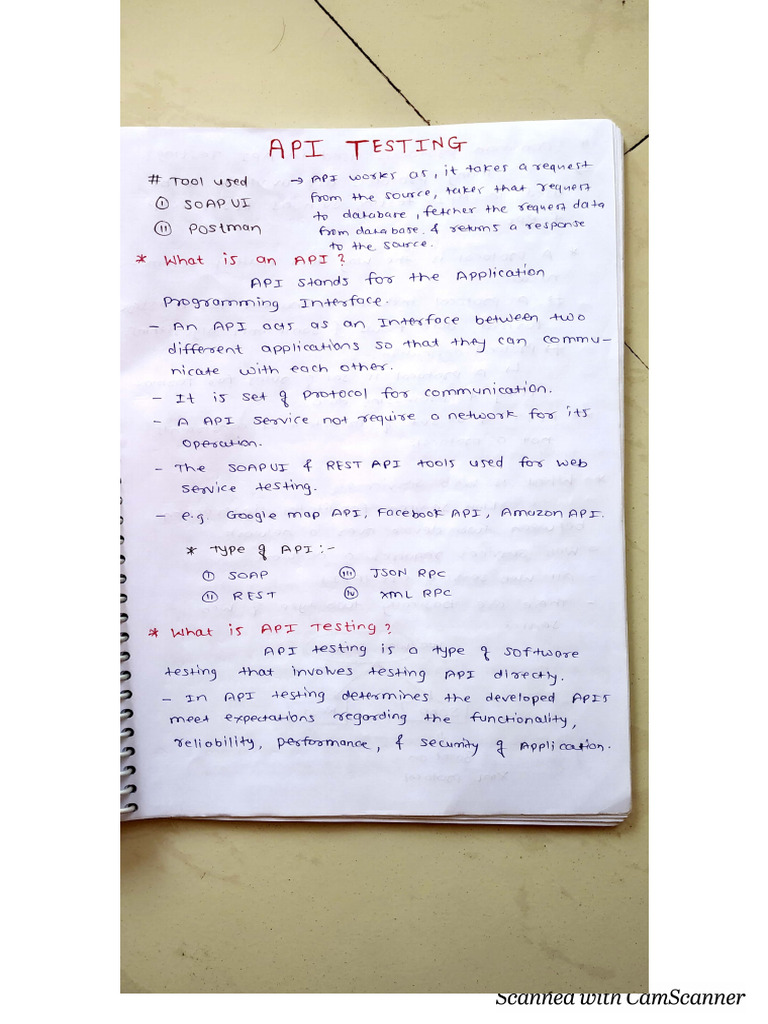 API TESTING
# Tool used
(i) SOAP UI
(ii) Postman
→ API works as, it takes a request
from the source, takes that request
to database, fetcher the request data
from database. & returns a response
to the source.
* What is an API?
API stands for the Application
Programming Interface.
- An API acts as an Interface between two
different applications so that they can commu-
nicate with each other.
- It is set of protocol for communication.
- A API service not require a network for its
operation.
- The SOAP UI & REST API tools used for web
service testing.
- e.g. Google map API, Facebook API, Amazon API.
* Type of API :-
(i) SOAP
(ii) REST
(iii) JSON RPC
(iv) XML RPC
* What is API Testing?
API testing is a type of software
testing that involves testing API directly.
- In API testing determines the developed APIs
meet expectations regarding the functionality,
reliability, performance, & security of Application.
Scanned with CamScanner